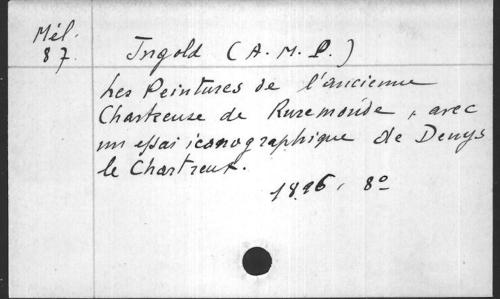 Mél.
87.
Ingold (A. M. P.)
Les Peintures de l'ancienne
Chartreuse de Ruremonde, avec
un essai iconographique de Denys
le Chartreux.
1896, 8º